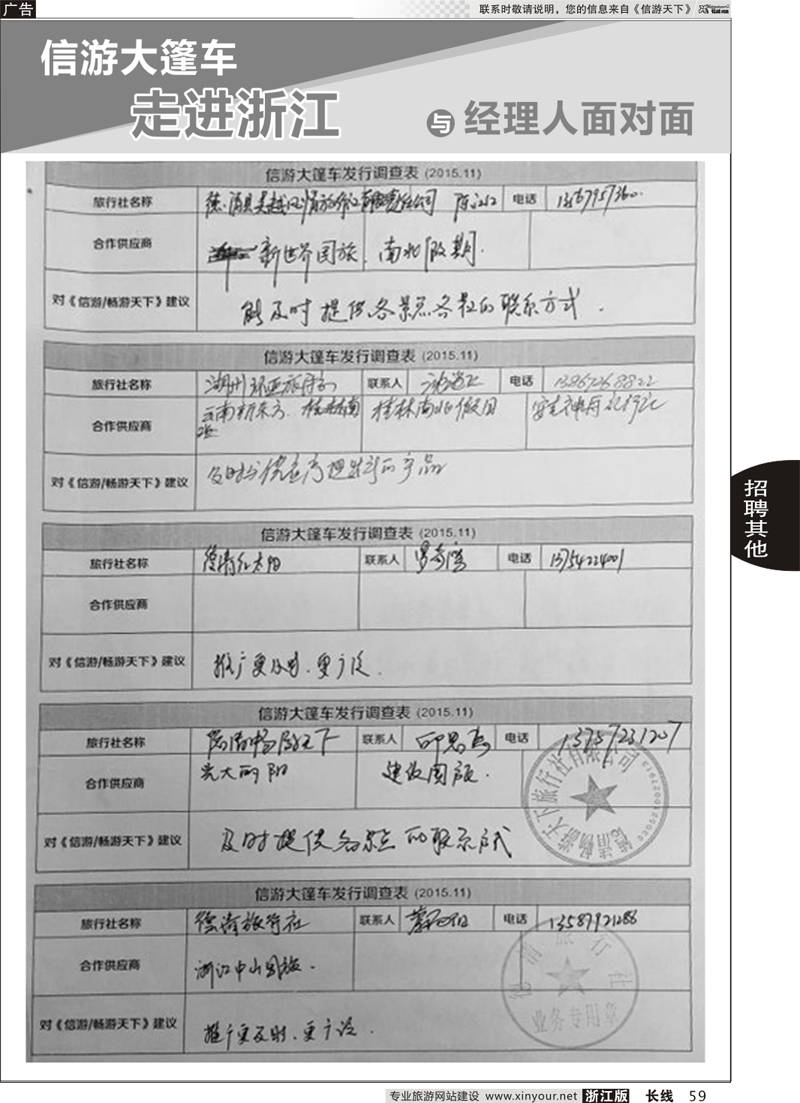 广告
联系时敬请说明，您的信息来自《信游天下》
信游大篷车
走进浙江 与 经理人面对面
信游大篷车发行调查表 (2015.11)
旅行社名称 电话
合作供应商 新世界国旅、南北假期.
对《信游/畅游天下》建议 能及时提供各景点各社的联系方式.
信游大篷车发行调查表 (2015.11)
旅行社名称 联系人 电话 13867268822
合作供应商 云南新东方、桂林南北 桂林南北假日
对《信游/畅游天下》建议 及时 供应商 的产品
信游大篷车发行调查表 (2015.11)
旅行社名称 德清红太阳 联系人 电话 13754224001
合作供应商
对《信游/畅游天下》建议 推广更及时、更广泛.
信游大篷车发行调查表 (2015.11)
旅行社名称 德清畅游天下 联系人 电话 13757231207
合作供应商 光大 阳 建发国旅.
对《信游/畅游天下》建议 及时提供各景点的联系方式
德清畅游天下旅行社有限公司
信游大篷车发行调查表 (2015.11)
旅行社名称 德清旅行社 联系人 电话 13587921288
合作供应商 浙江中山国旅.
对《信游/畅游天下》建议 推广更及时、更广泛.
德清旅行社
业务专用章
招聘其他
专业旅游网站建设 www.xinyour.net 浙江版 长线 59